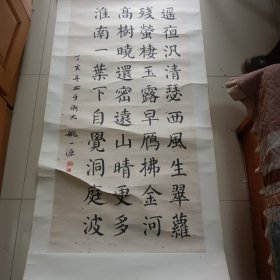 遥夜汎清瑟西風生翠蘿
殘螢棲玉露早鴈拂金河
高樹曉還密遠山晴更多
淮南一葉下自覺洞庭波
丁亥年